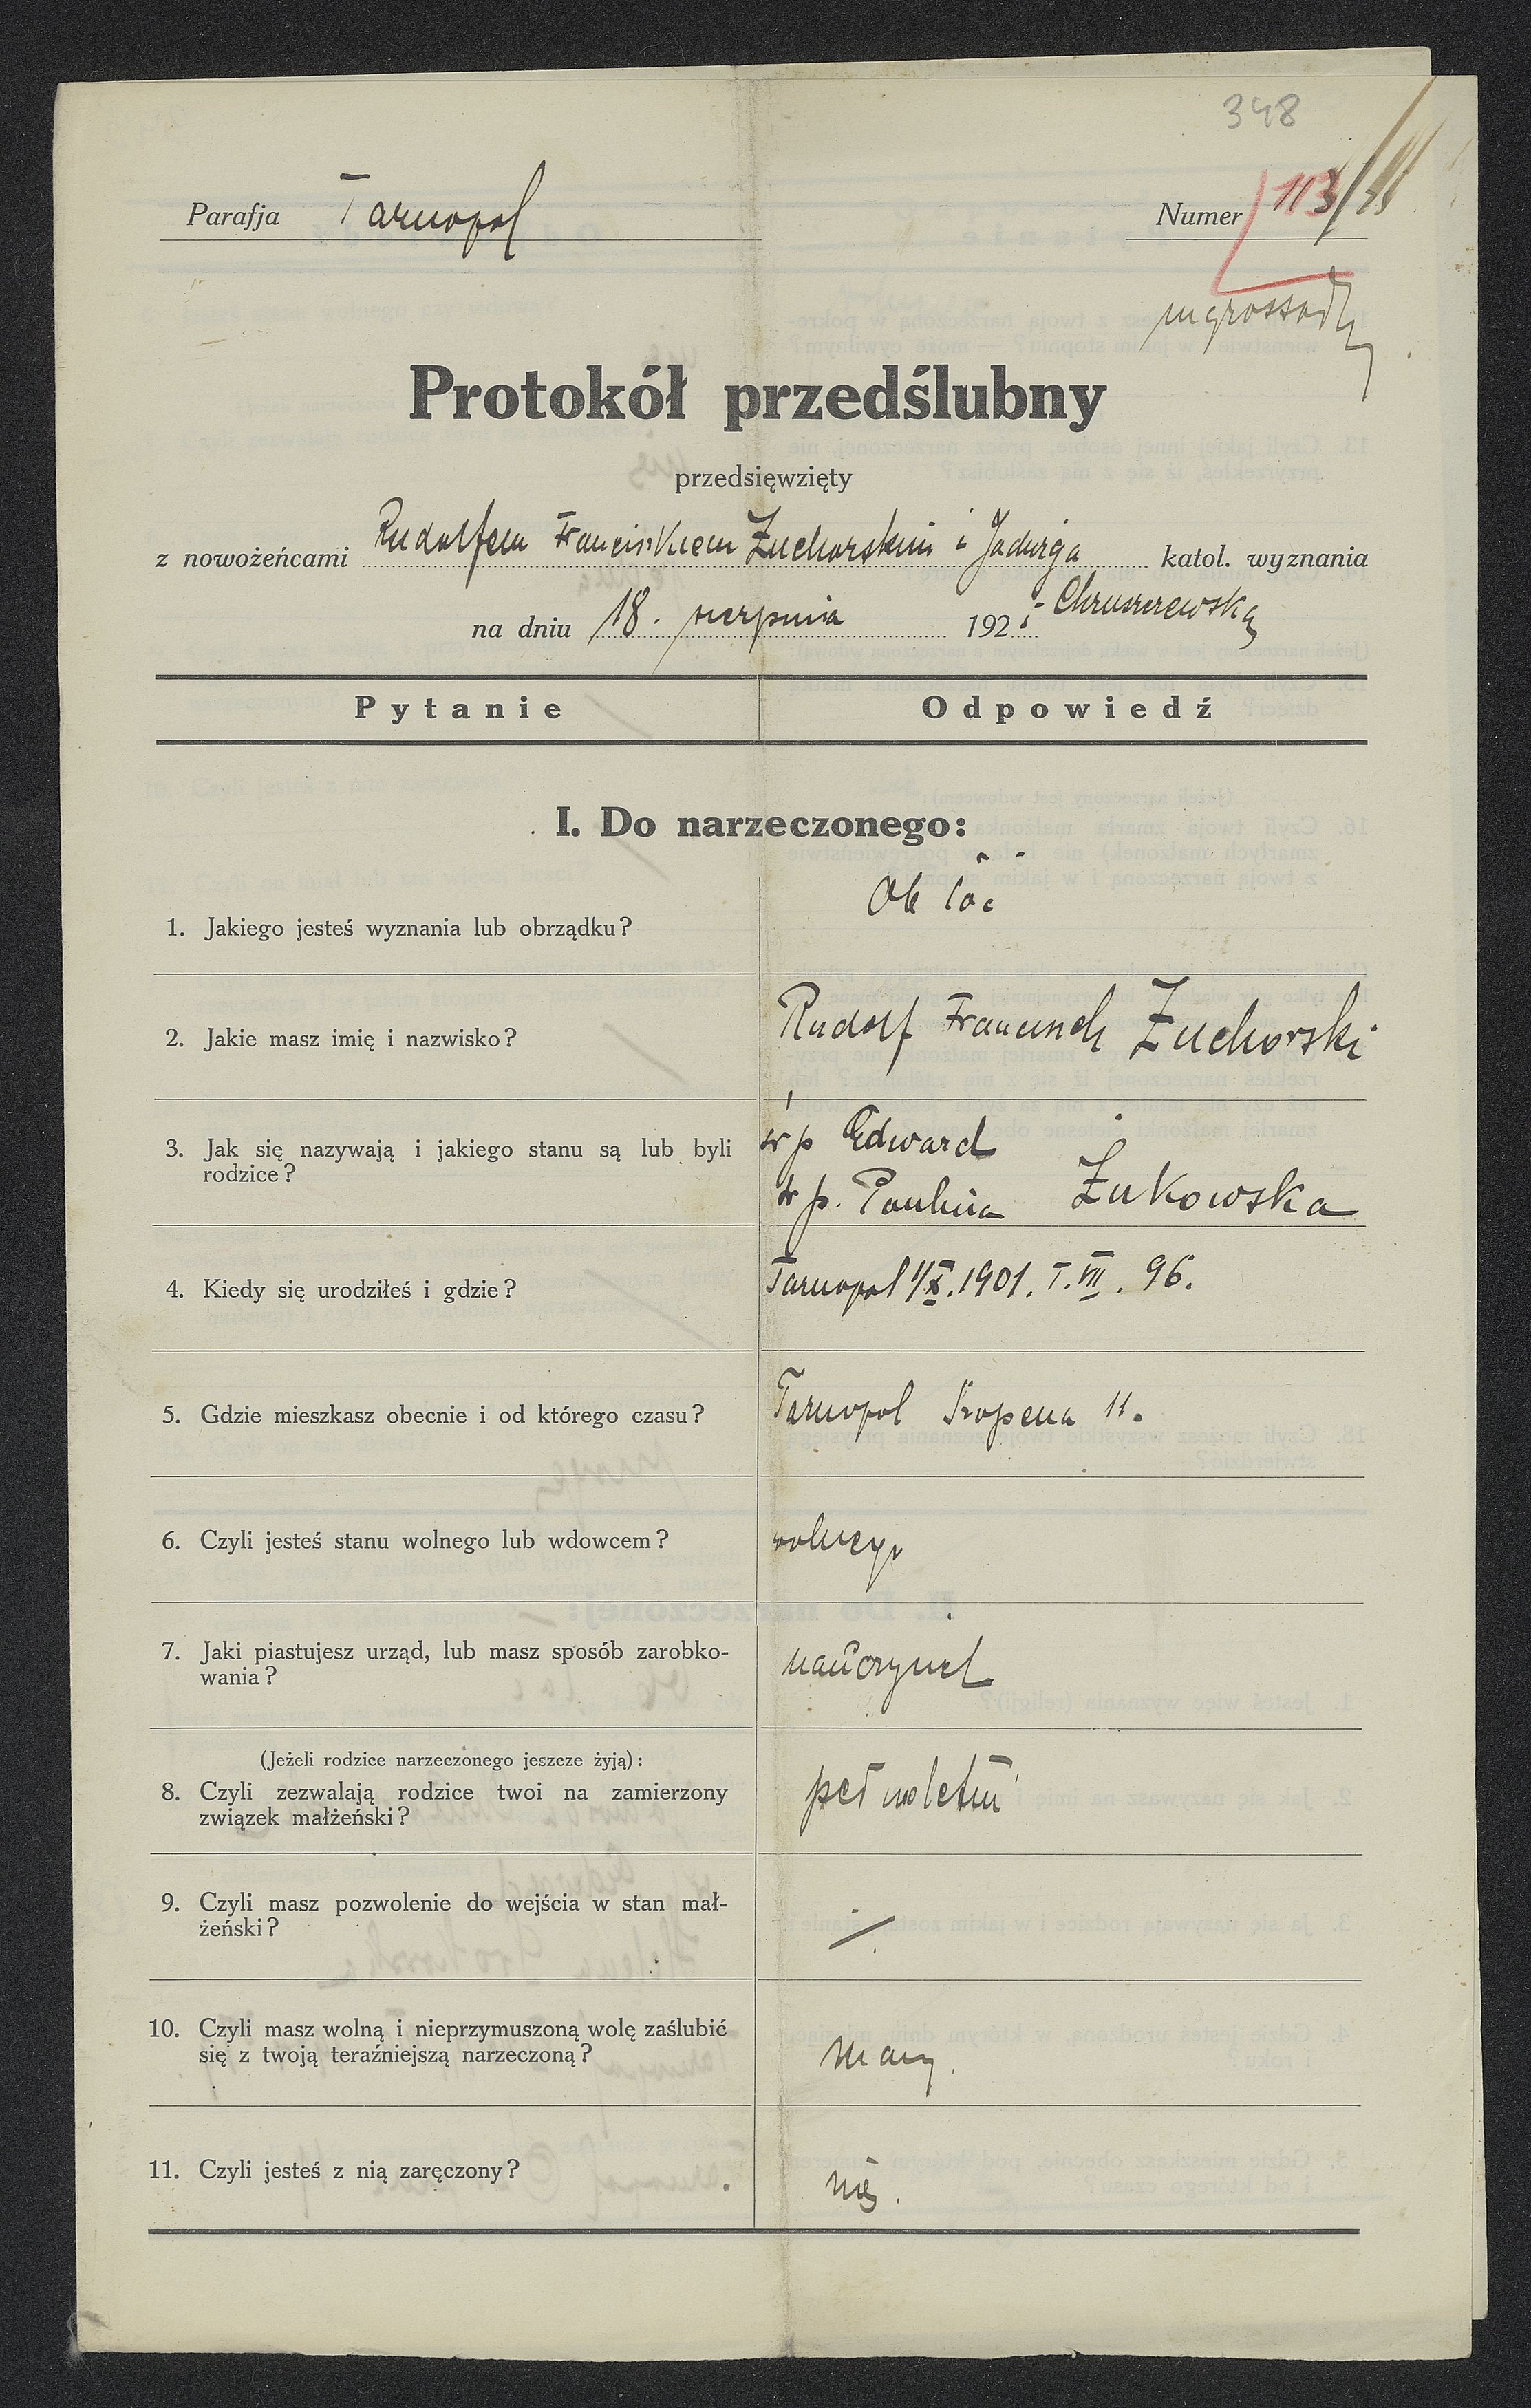 348
Parafja Tarnopol
Numer 113/
ingrossaty
Protokół przedślubny
przedsięwzięty
z nowożeńcami Rudolfem Franciszkiem Żuchorskim i Jadwigą katol. wyznania
na dniu 18. sierpnia 192 Chruszczewską
Pytanie Odpowiedź
I. Do narzeczonego:
1. Jakiego jesteś wyznania lub obrządku? Ob łać
2. Jakie masz imię i nazwisko? Rudolf Franciszek Żuchorski
3. Jak się nazywają i jakiego stanu są lub byli ś p Edward
rodzice? ś p. Paulina Żukowska
4. Kiedy się urodziłeś i gdzie? Tarnopol 1/X. 1901. T. VII. 96.
5. Gdzie mieszkasz obecnie i od którego czasu? Tarnopol Szopena 11.
6. Czyli jesteś stanu wolnego lub wdowcem? wolnego
7. Jaki piastujesz urząd, lub masz sposób zarobko-
wania? nauczyciel
(Jeżeli rodzice narzeczonego jeszcze żyją):
8. Czyli zezwalają rodzice twoi na zamierzony
związek małżeński? pełnoletni
9. Czyli masz pozwolenie do wejścia w stan mał-
żeński? /
10. Czyli masz wolną i nieprzymuszoną wolę zaślubić
się z twoją teraźniejszą narzeczoną? mam.
11. Czyli jesteś z nią zaręczony? nie.